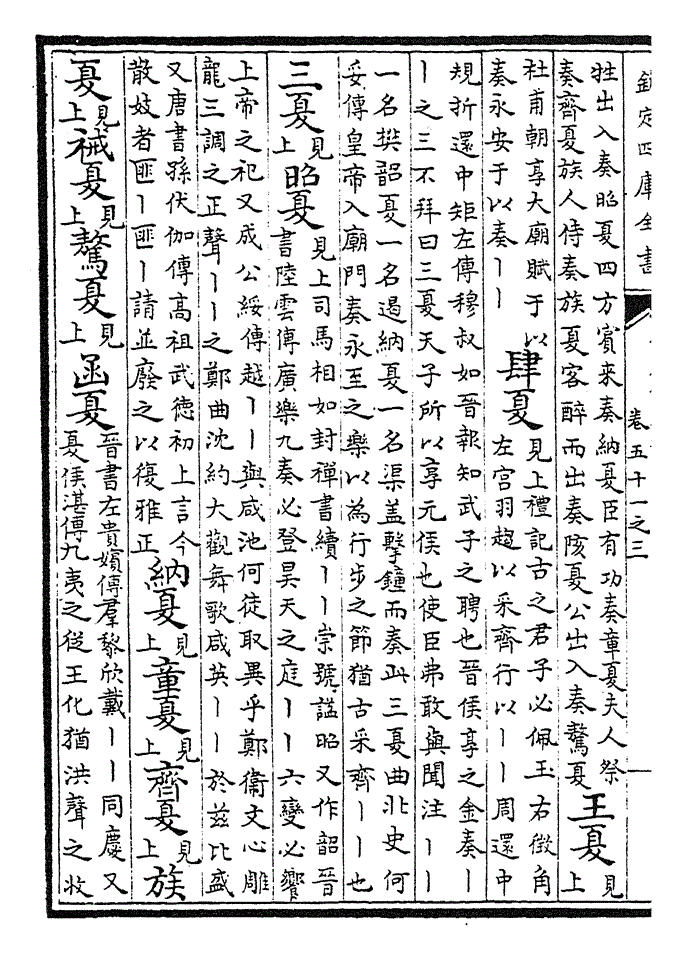 欽定四庫全書
卷五十一之三
牲出入奏昭夏四方賓來奏納夏臣有功奏章夏夫人祭
奏齊夏族人侍奏族夏客醉而出奏陔夏公出入奏驁夏
王夏見上
杜甫朝享大廟賦于以
奏永安于以奏〡〡
肆夏
見上禮記古之君子必佩玉右徵角
左宮羽趨以采齊行以〡〡周還中
規折還中矩左傳穆叔如晉報知武子之聘也晉侯享之金奏〡
〡之三不拜曰三夏天子所以享元侯也使臣弗敢與聞注〡〡
一名樊韶夏一名遏納夏一名渠蓋擊鐘而奏此三夏曲北史何
妥傳皇帝入廟門奏永至之樂以為行步之節猶古采齊〡〡也
三夏見上昭夏
見上司馬相如封禪書續〡〡崇號諡昭又作韶晉
書陸雲傳廣樂九奏必登昊天之庭〡〡六變必饗
上帝之祀又成公綏傳越〡〡與咸池何徒取異乎鄭衞文心雕
龍三調之正聲〡〡之鄭曲沈約大觀舞歌咸英〡〡於兹比盛
又唐書孫伏伽傳高祖武德初上言今
散妓者匪〡匪〡請並廢之以復雅正
納夏見上童夏見上齊夏見上族
夏見上祴夏見上驁夏見上函夏
晉書左貴嬪傳羣黎欣戴〡〡同慶又
夏侯湛傳九夷之從王化猶洪聲之收